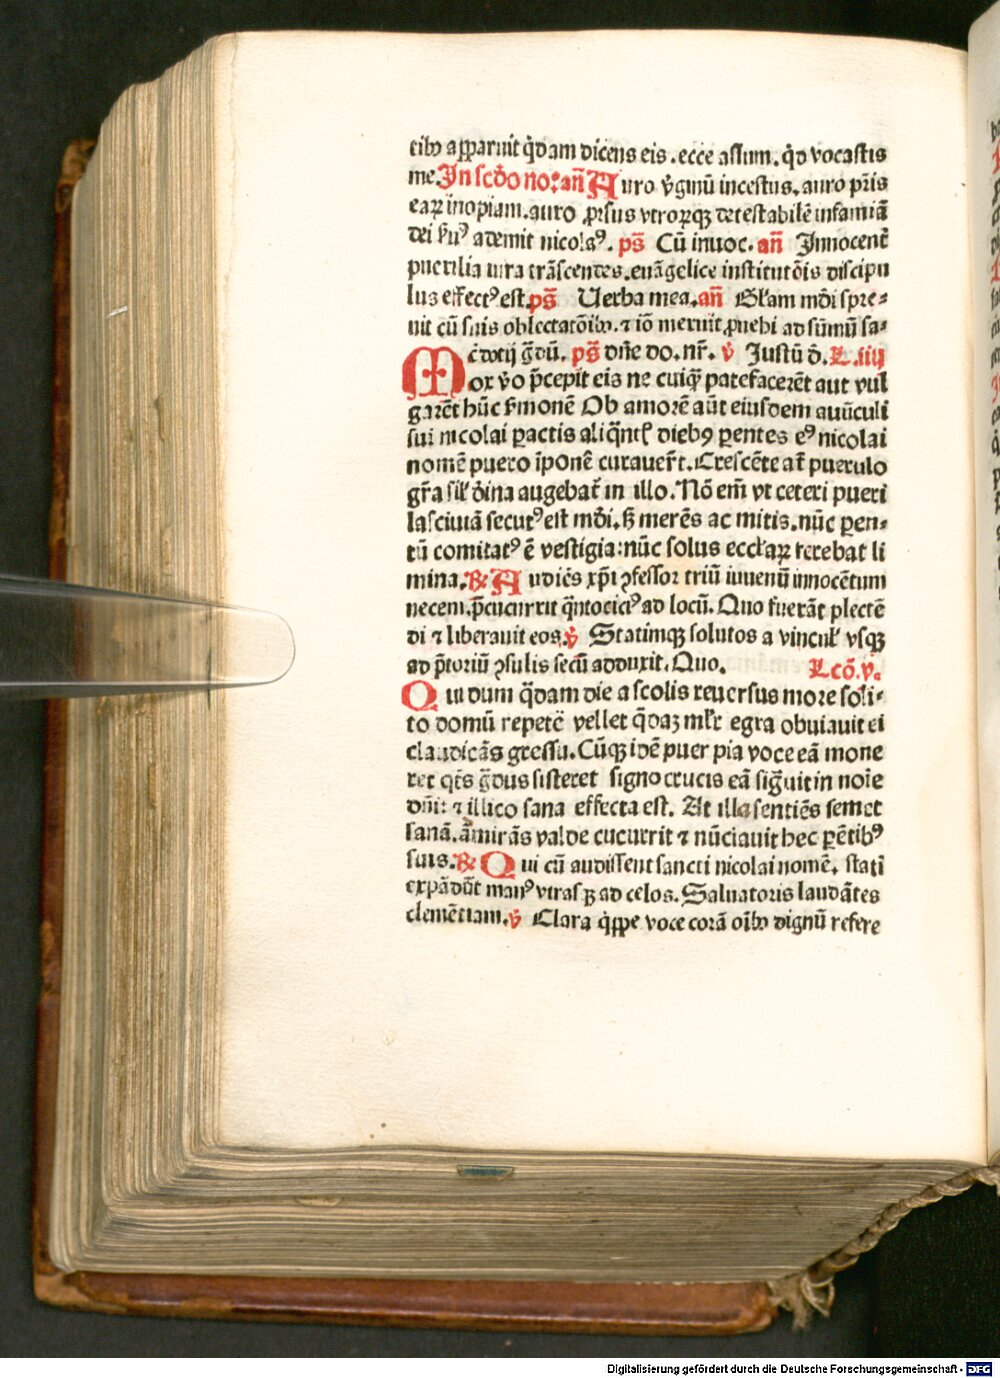 tibꝰ apparuit q̇dam dicens eis. ecce assum. q̇d vocastis
me. In scd̄o no: an̄ Auro v̇ginū incestus. auro pr̄is
eaꝝ inopiam. auro ꝓrsus vtroꝝqꝫ detestabilē infamiā
dei ẜuꝰ ademit nicolaꝰ. ps̄ Cū inuoc. an̄ Innocent̄
puerilia iura trāscendes. euāgelice institutōis discipu
lus effectꝰ est. ps̄ Uerba mea. an̄ Gl̄am mūdi spre⸗
uit cū suis oblectatōibꝫ. ⁊ iō meruit ꝓuehi ad sūmū sa⸗
c̄dotij g̈dū. ps̄ dn̄e do. nr̄. v̇ Justū d̄. L. iiij
Mox v̇o p̄cepit eis ne cuiq̄ꝫ patefacerēt aut vul
garēt hūc ẜmonē Ob amorē aūt eiusdem auūculi
sui nicolai ꝑactis aliq̄ntꝭ diebꝰ ꝑentes eꝰ nicolai
nomē puero īponē curauer̄t. Crescēte at̄ puerulo
gr̄a sil̄ d̄ina augebat̄ in illo. Nō em̄ vt ceteri pueri
lasciuiā secutꝰ est mūdi. ẜꝫ merēs ac mitis. nūc ꝑen⸗
tū comitatꝰ ē vestigia: nūc solus eccl̄aꝝ terebat li
mina. ℟ Audiēs xp̄i ꝯfessor triū iuuenū innocētum
necem. p̄cucurrit q̄ntociꝰ ad locū. Quo fuerāt plectē
di ⁊ liberauit eos. v̇ Statimqꝫ solutos a vincul̄ vsqꝫ
ad p̄toriū ꝯsulis secū adduxit. Quo. Lcō. v.
Qui dum q̄dam die a scolis reuersus more soli⸗
to domū repetē vellet q̄daꝫ ml̄r egra obuiauit ei
claudicās gressu. Cūqꝫ idē puer pia voce eā mone
ret qt̄s g̈dus sisteret signo crucis eā sig̈uit in noīe
dn̄i: ⁊ illico sana effecta est. At illa sentiēs semet
sanā. āmirās valde cucurrit ⁊ nūciauit hec ꝑētibꝰ
suis. ℟ Qui cū audissent sancti nicolai nomē. stati
expādūt manꝰ vtrasqꝫ ad celos. Saluatoris laudātes
clemētiam. v̇ Clara q̇ppe voce corā oībꝫ dignū refere
Digitalisierung gefördert durch die Deutsche Forschungsgemeinschaft - DFG